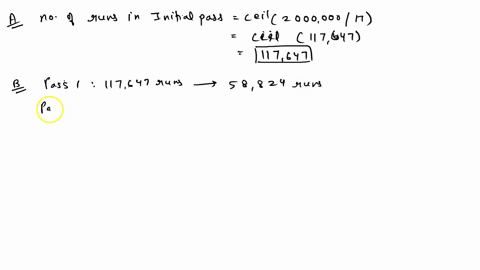 A no. of runs in Initial pass = ceil( 2 000,000 / 17)
= ceil ( 117,647)
= 117,647
B Pass 1 : 117,647 runs → 58,824 runs
Pa